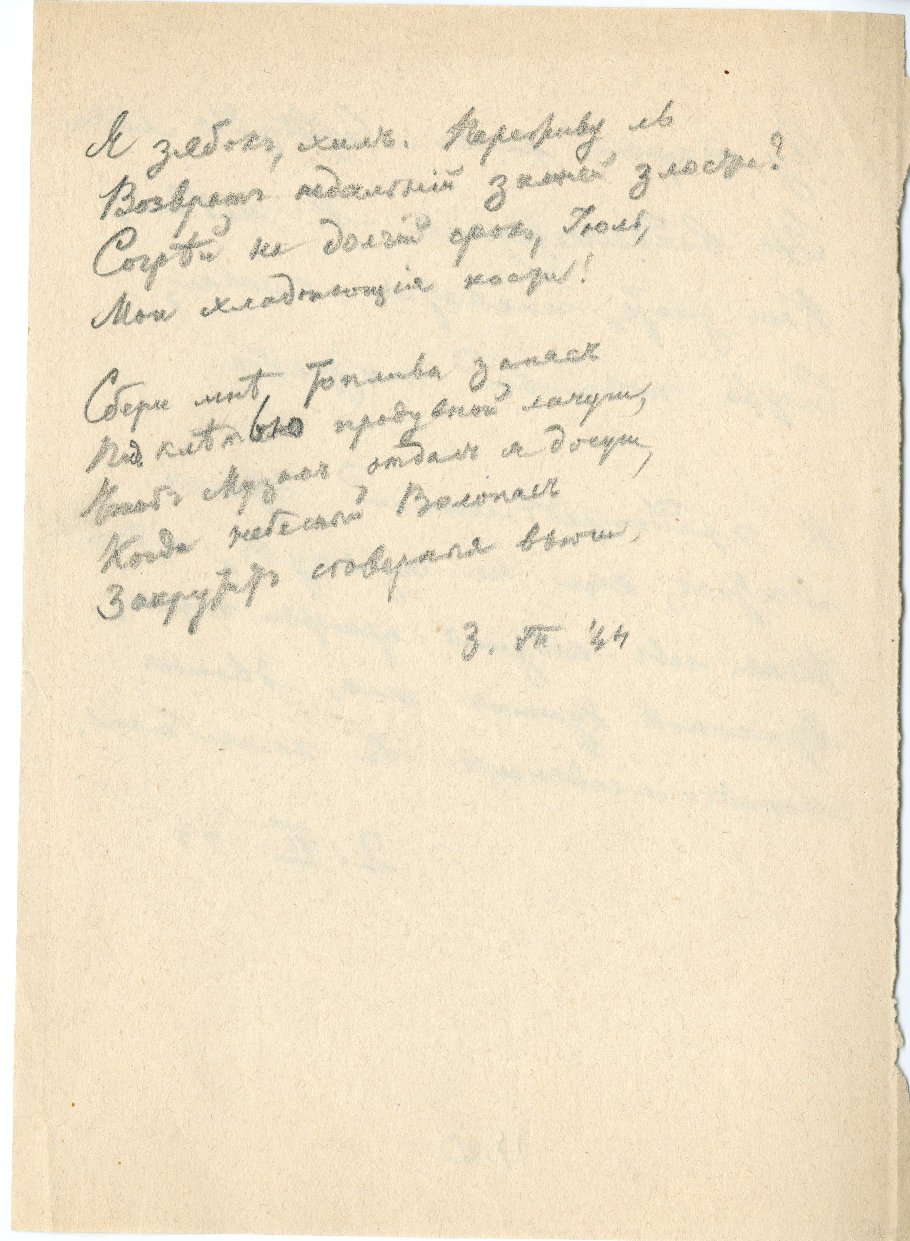 Я зябокъ, хилъ. Переживу ль
Возвратъ недальній зимней злости?
Согрѣй на долгій срокъ, Іюль,
Мои хладѣющія кости!
Сбери мнѣ топлива запасъ
Под клѣтью продувной лачуги,
Чтобъ Музамъ отдалъ я досуги,
Когда небесный Волопасъ
Закрутитъ сѣверныя вьюги.
3. VII '44